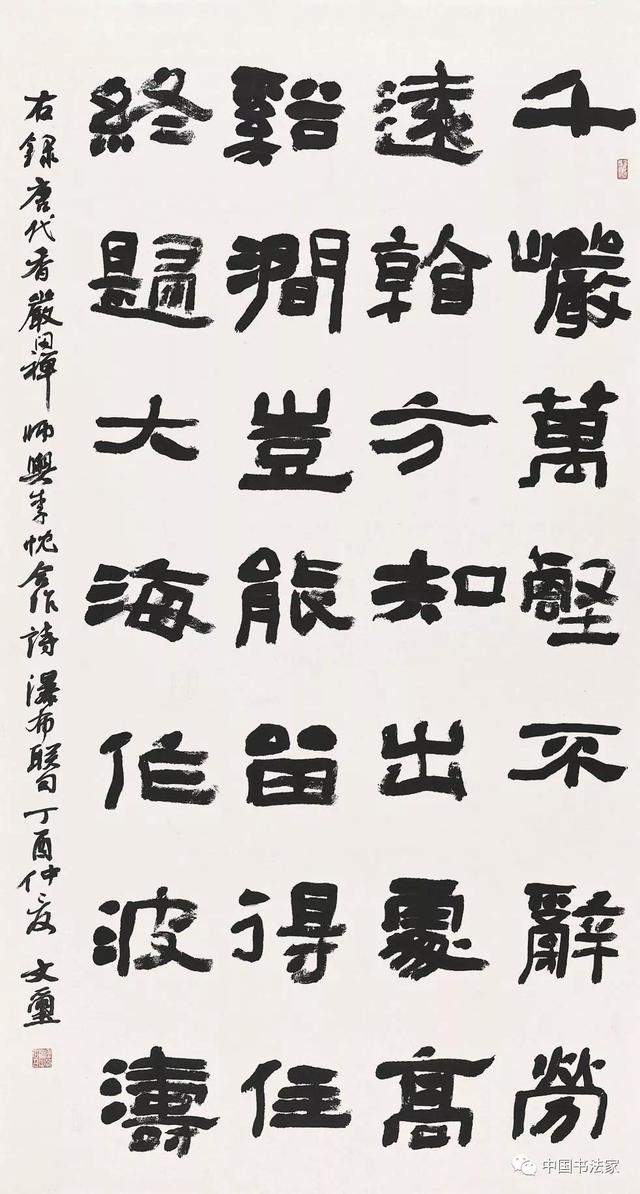 千巖萬壑不辭勞
遠看方知出處高
谿澗豈能留得住
終歸大海作波濤
右錄唐代香嚴閒禪師與李忱合作詩瀑布聯句丁酉仲夏文璽
中国书法家